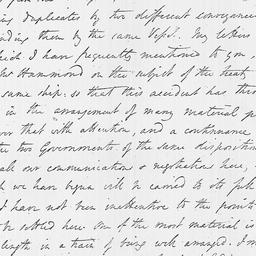 ing duplicates by two different conveyances
nding them by the same Vessel. My letters
which I have frequently mentioned to you
Mr Hammond on the subject of the treaty
same ship: so that this accident has thro
in the arrangement of many material p
that with attention, and a continuance
two Governments of the same disposition
all our communications & negotiations here,
we have begun will be carried to its full
I have not been inattentive to the points
be settled here. One of the most material is
length in a train of being well arranged. I